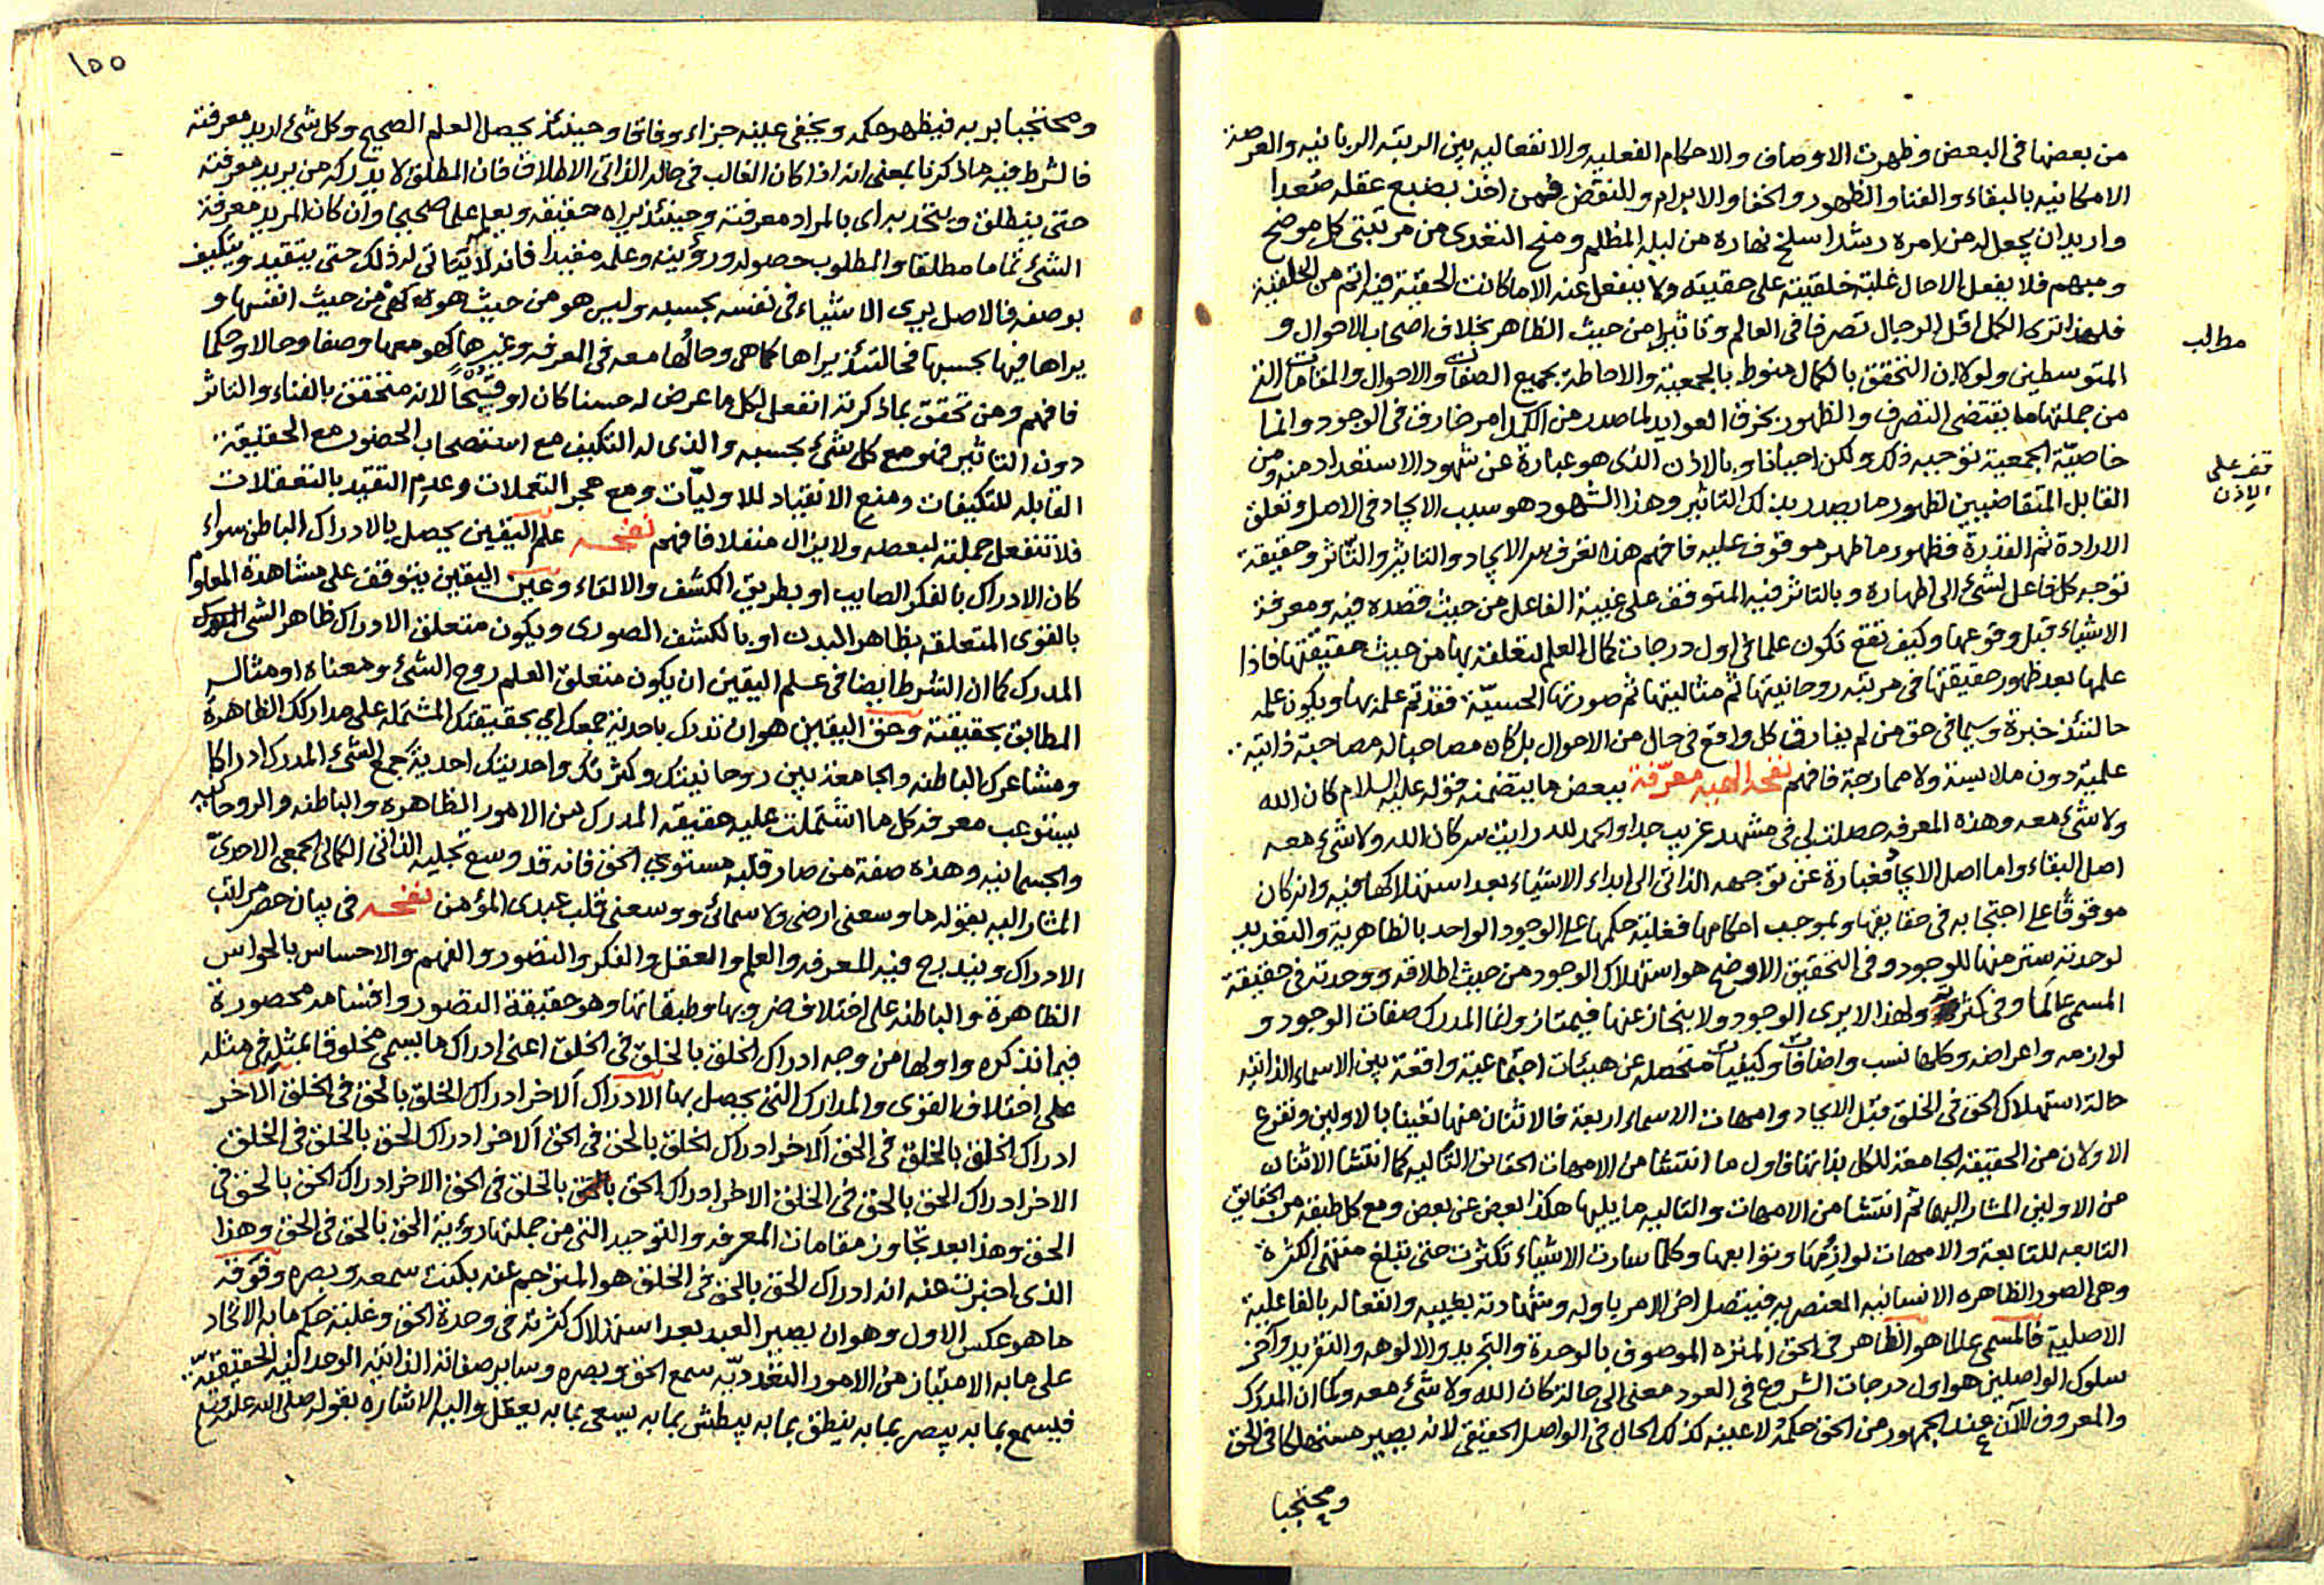 من بعضها فى البعض وظهرت الاوصاف والاحكام الفعليه والانفعاليه بين الرتبه الربانيه والعرصة
الامكانيه بالبقاء والفنا والظهور والخفا والابرام والنقض فمن اخذ بضبع عقله صُعدا
واريد ان يجعل له من امره رشدا سلخ نهاره من ليله المظلم ومنح التعدى من مرتبتى كل موضح
ومبهم فلا يفعل الا حال غلبة خلقيته على حقيته ولا ينفعل عنه الا ما كانت الحقية فيه اتم من الخلقية
فلهذا ترى الكمل اقل الرجال تصرفا فى العالم وتاثيرا من حيث الظاهر بخلاف اصحاب الاحوال و
مطالب
المتوسطين ولولا ان التحقق بالكمال منوط بالجمعية والاحاطة بجميع الصفات والاحوال والمقامات التى
من جملتها ما يقتضى التصرف والظهور بخرق العوايد لما صدر من الكمل امر خارق فى الوجود وانما
خاصيّة الجمعية توجبه ذلك ولكن احيانا وبالاذن الذى هو عبارة عن شهود الاستعداد منه ومن
قف على الاذن
القابل المتقاضيين لظهور ما يصدر بذلك التاثير وهذا الشهود هو سبب الايجاد فى الاصل وتعلق
الارادة ثم القدرة فظهور ما ظهر موقوف عليه فافهم هذا تعرف سر الايجاد والتاثير والتّاثر وحقيقة
توجه كل فاعل لشئ الى اظهاره وبالتاثر فيه المتوقف على غيبية الفاعل من حيث قصده فيه ومعرفة
الاشياء قبل وقوعها وكيف تقع تكون علما فى اول درجات كمال العلم لتعلقه بها من حيث حقيقتها فاذا
علمها بعد ظهور حقيقتها فى مرتبه روحانيتها ثم مثاليتها ثم صورتها الحسيّة فقد تم علمه بها ويكون علمه
حالتئذ خبرة وسيما فى حق من لم يفارق كل واقع فى حال من الاحوال بل كان مصاحبا له مصاحبة ذاتية
علمية دون ملابسة ولا ممازجة فافهم نفحه الهيه معرّفة ببعض ما يتضمنه قوله عليه السلام كان الله
ولا شئ معه وهذه المعرفه حصلت لى فى مشهد غريب جدا والحمد لله رايت سر كان الله ولا شئ معه
اصل البقاء واما اصل الايجاد فعبارة عن توجهه الذاتى الى ابداء الاشياء بعد استهلاكها فيه وانه كان
موقوفًا على احتجابه فى حقايقها وبموجب احكامها فغلبة حكمها على الوجود الواحد بالظاهرية والتعديد
لوحدته ستر منها للوجود وفى التحقيق الاوضح هو استهلاك الوجود من حيث اطلاقه ووحدته فى حقيقة
المسمى عالمًا وفى كثرته ولهذا لا يرى الوجود ولا ينحاز عنها فيمتاز وانما المدرك صفات الوجود و
لوازمه واعراضه وكلها نسب واضافات وكيفيات متحصله عن هيئات اجتماعية واقعة بين الاسماء الذاتيه
حالة استهلاك الحق فى الخلق قبل الايجاد وامهات الاسماء اربعة فالاثنان منها تعينا بالاولين وتفرع
الاولان من الحقيقه الجامعة للكل بذاتها فاول ما انتشا من الامهات الحقايق التاليه كما انتشا الاثنان
من الاولين المشار اليهما ثم انتشا من الامهات والتاليه ما يليها هكذا بعض عن بعض ومع كل طبقه من الحقايق
التابعه للتابعة والامهات لوازمها وتوابعها وكلما سارت الاشياء تكثرت حتى تبلغ منتهى الكثرة
وهى الصور الظاهره الانسانيه العنصريه فيتصل اخر الامر باوله وشهادته بغيبه وانفعاله بالفاعليه
الاصلية فالمسمى عالما هو الظاهر فى الحق المنزه الموصوف بالوحدة والتجريد والالوهه والتفريد وآخر
سلوك الواصلين هو اول درجات الشروع فى العود معنى الى حالة كان الله ولا شئ معه وكما ان المدرك
والمعروف الآن عند الجمهور من الحق حكمه لا عينه كذلك الحال فى الواصل الحقيقى لانه يصير مستهلكا فى الحق
ومحتجبا
١٥٥
ومحتجبا بربه فيظهر حكمه ويخفى عينه جزاء وفاقا وحينئذ يحصل العلم الصحيح وكل شئ اريد معرفته
فالشرط فيه ما ذكرنا بمعنى انه اذا كان الغالب فى حاله الذاتى الاطلاق فان المطلق لا يدركه من يريد معرفته
حتى ينطلق ويتحد براى بالمراد معرفته وحينئذ يراه حقيقه ويعلم علما صحيحا وان كان المريد معرفة
الشئ تماما مطلقا والمطلوب حصوله ورؤيته وعلمه مقيدا فانه لا يتاتى له ذلك حتى يتقيد ويتكيف
بوصفه فالاصل يرى الاشياء فى نفسه بحسبه وليس هو من حيث هو من حيث انفسها و
يراها فيها بحسبها فحالتئذ يراها كما هى وحالها معه فى المعرفه وغيرها كهو معها وصفا وحالا وحكما
فافهم ومن تحقق بما ذكرته انفعل لكل ما عرض له حسنا كان او قبيحًا لانه متحقق بالفناء والتاثر
دون التاثير فهو مع كل شئ بحسبه والذى له التكيف مع استصحاب الحضور مع الحقيقة
القابله للتكيفات ومنع الانقياد للاوليّات ومع هجر التعملات وعدم التقيد بالتعقلات
فلا تنفعل جملته لبعضه ولا يزال منفعلا فافهم نفحه علم اليقين يحصل بالادراك الباطن سواء
كان الادراك بالفكر الصايب او بطريق الكشف والالقاء وعين اليقين يتوقف على مشاهدة المعلوم
بالقوى المتعلقه بظاهر البدن او بالكشف الصورى ويكون متعلق الادراك ظاهر الشئ
المدرك كما ان الشرط ايضا فى علم اليقين ان يكون متعلق العلم روح الشئ ومعناه او مثاله
المطابق بحقيقته وحق اليقين هو ان تدرك باحدية جمعك اى بحقيقتك المشتمله على مداركك الظاهرة
ومشاعرك الباطنه والجامعة بين روحانيتك وكثرتك واحديتك احدية جمع الشئ المدرك ادراكا
يستوعب معرفه كل ما اشتملت عليه حقيقه المدرك من الامور الظاهره والباطنه والروحانيه
والجسمانيه وهذه صفة من صار قلبه مستوى الحق فانه قد وسع تجليه الذاتى الكمالى الجمعى الاحدىّ
المشار اليه بقوله ما وسعنى ارضى ولا سمائى ووسعنى قلب عبدى المؤمن نفحه فى بيان حصر مراتب
الادراك ويندرج فيه المعرفه والعلم والعقل والفكر والتصور والفهم والاحساس بالحواس
الظاهرة والباطنه على اختلاف ضروبها وطبقاتها وهو حقيقة التصور واقسامه محصورة
فيما نذكره واولها من وجه ادراك الخلق بالخلق فى الخلق اعنى ادراك ما يسمى مخلوقا بمثله فى مثله
على اختلاف القوى والمدارك التى يحصل بها الادراك الاخر ادراك الخلق بالحق فى الخلق الاخر
ادراك الخلق بالخلق فى الحق الاخر ادراك الخلق بالحق فى الحق الاخر ادراك الحق بالخلق فى الخلق
الاخر ادراك الحق بالحق فى الخلق الاخر ادراك الحق بالخلق فى الحق الاخر ادراك الحق بالحق فى
الحق وهذا بعد تجاوز مقامات المعرفه والتوحيد التى من جملتها رؤية الحق بالحق فى الحق وهذا
الذى اخبرت عنه انه ادراك الحق بالحق فى الخلق هو المترجم عنه بكنت سمعه وبصره وفوقه
ما هو عكس الاول وهو ان يصير العبد بعد استهلاك كثرته فى وحدة الحق وغلبة حكم ما به الاتحاد
على ما به الامتياز من الامور التعدديّه سمع الحق وبصره وساير صفاته الذاتيه الوحدانيه الحقيقيّة
فيسمع بما به يبصر بما به ينطق بما به يبطش بما به يسعى بما به يعقل واليه الاشاره بقوله صلى الله عليه